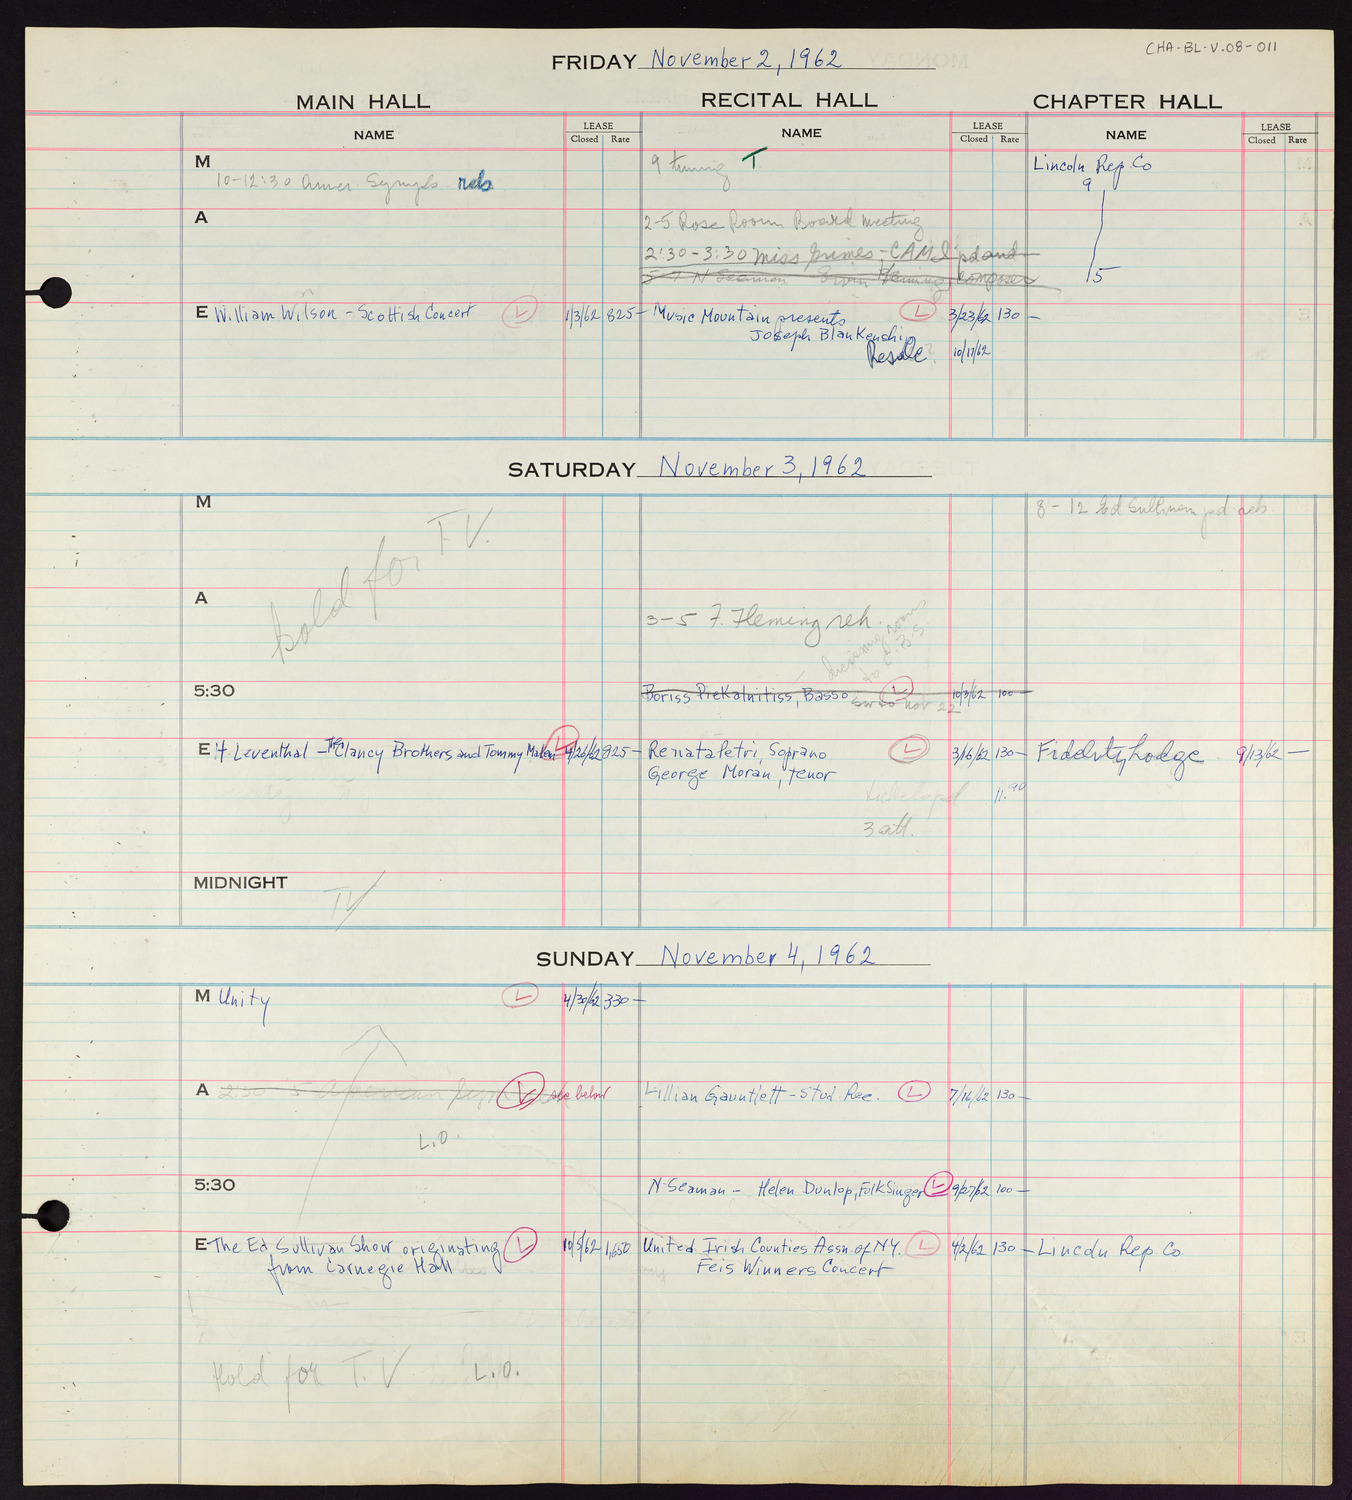 CHA-BL-V.08-011
FRIDAY November 2, 1962
MAIN HALL RECITAL HALL CHAPTER HALL
NAME LEASE Closed Rate NAME LEASE Closed Rate NAME LEASE Closed Rate
M
10-12:30 Amer Symph reh
9 tuning T
Lincoln Rep. Co
9
A
2-5 Rose Room Board meeting
2:30-3:30 Miss Grimes - CAMI pd and
5-7 N Seaman Fleming, composer
15
E William Wilson - Scottish Concert L 1/3/62 825- Music Mountain presents L 3/23/62 130 -
Joseph Blankenship
Resale 10/17/62
SATURDAY November 3, 1962
M
8 - 12 Ed Sullivan pd reh
hold for T.V.
A
3-5 F. Fleming reh.
dressing room
to C.B.S.
5:30
Boriss Piekalnitiss, Basso L 10/3/62 100 -
Nov 22
E H. Leventhal - The Clancy Brothers and Tommy Maken L 9/26/62 925- Renata Petri, Soprano L 3/16/62 130 - Fidelity Lodge 9/13/62 -
George Moran, tenor
11.90
3 att.
MIDNIGHT
TV
SUNDAY November 4, 1962
M Unity L 4/30/62 330 -
A 2:30-5 American Sym L see below Lillian Gauntlett - Stud. Rec. L 7/16/62 130 -
L.O.
5:30
N. Seaman - Helen Dunlop, Folk Singer L 9/27/62 100 -
E The Ed Sullivan Show originating L 10/5/62 1,650 United Irish Counties Assn. of N.Y. L 4/2/62 130 - Lincoln Rep. Co
from Carnegie Hall Feis Winners Concert
Hold for T.V L.O.